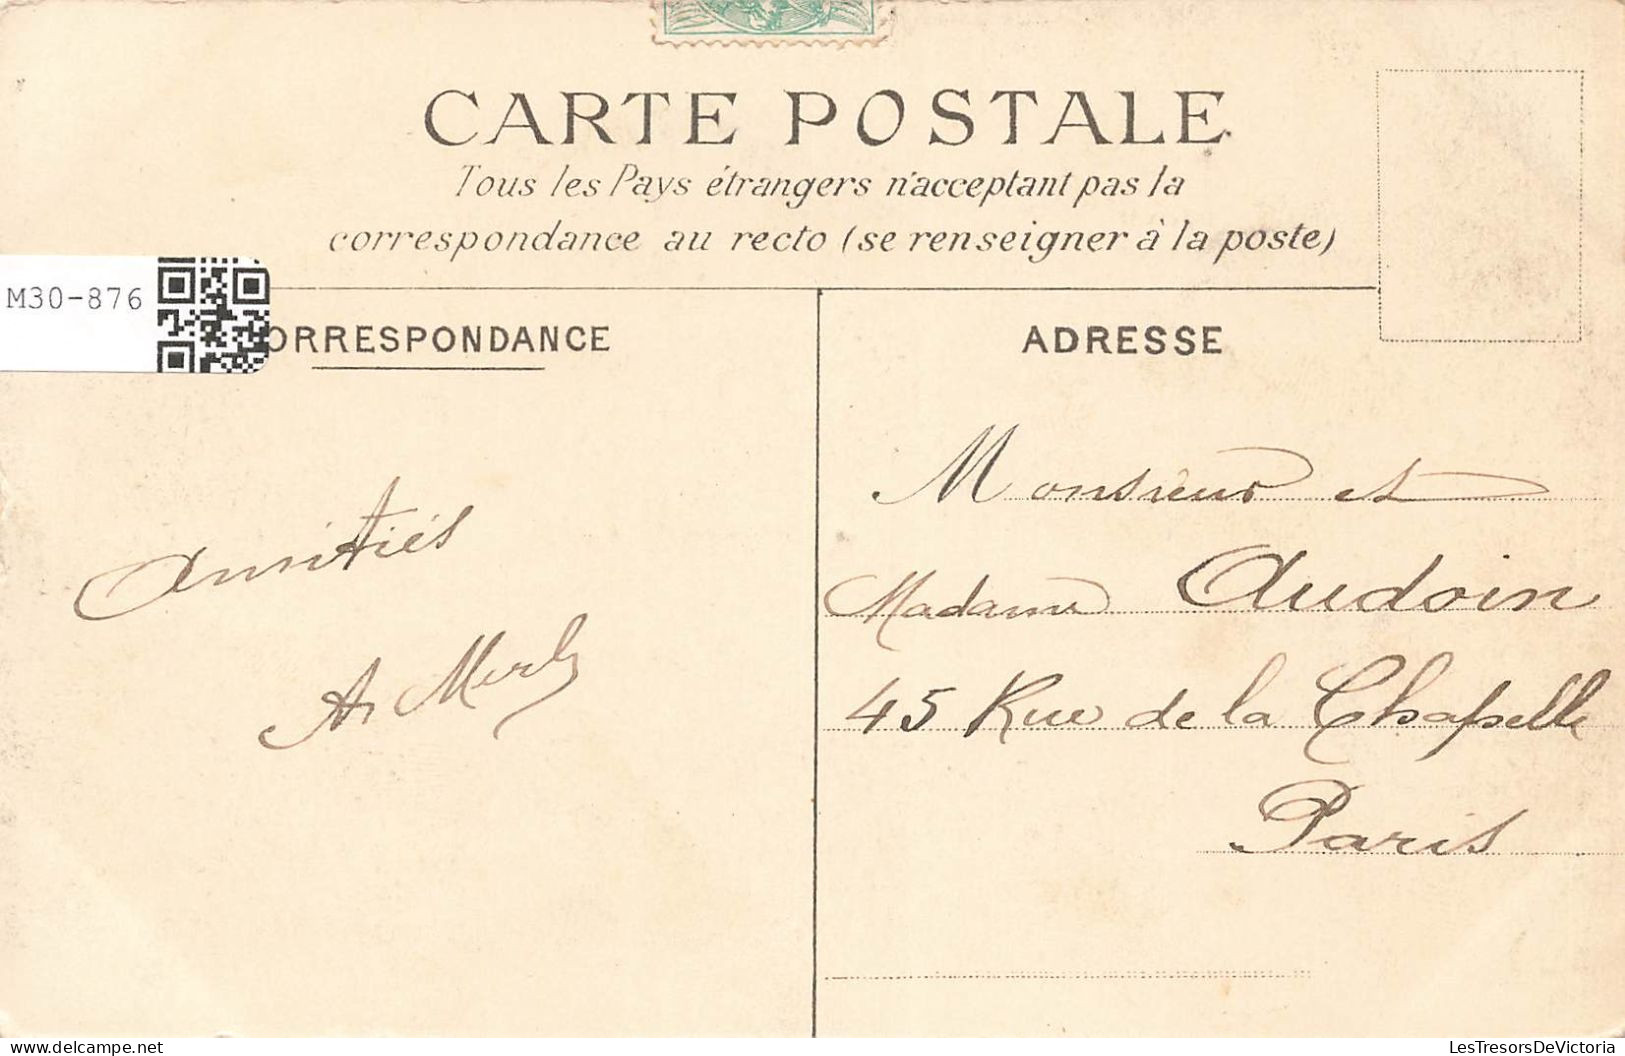 CARTE POSTALE
Tous les Pays étrangers n'acceptant pas la
correspondance au recto (se renseigner à la poste)
M30-876
ORRESPONDANCE
ADRESSE
Amitiés
A. Merly
Monsieur et
Madame Audoin
45 Rue de la Chapelle
Paris
delcampe.net
LesTresorsDeVictoria